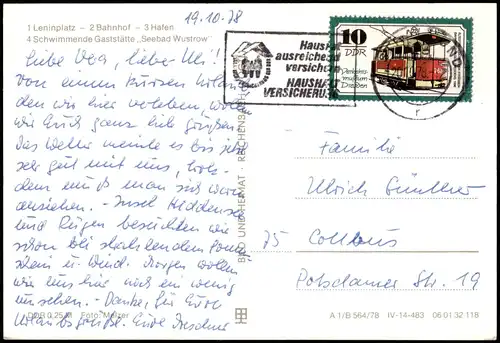 1 Leninplatz – 2 Bahnhof – 3 Hafen
4 Schwimmende Gaststätte „Seebad Wustrow"
19.10.78
Liebe Vera, lieber Uli!
Von einem kurzen Urlaub
den wir hier verleben, wollen
wir Euch ganz lieb grüßen.
Das Wetter meinte es bis jetzt
sehr gut mit uns, trotz-
dem muß man sich warm
anziehen. - Insel Hiddensee
und Rügen besuchten wir
schon bei strahlendem Sonnen-
schein u. Wind. Morgen wollen
wir uns hier noch ein wenig
umsehen. - Danke für Eure
Urlaubsgrüße. Eure Dresdner
DDR 0,25 M Foto: Melzer
BILD UND HEIMAT · REICHENBACH
Haush
ausreichend
versiche
HAUSHALT
VERSICHERUNG
10
DDR
Verkehrs-
museum
Dresden
Familie
Ulrich Günther
75 Cottbus
Potsdamer Str. 19
A 1/B 564/78 IV-14-483 06 01 32 118